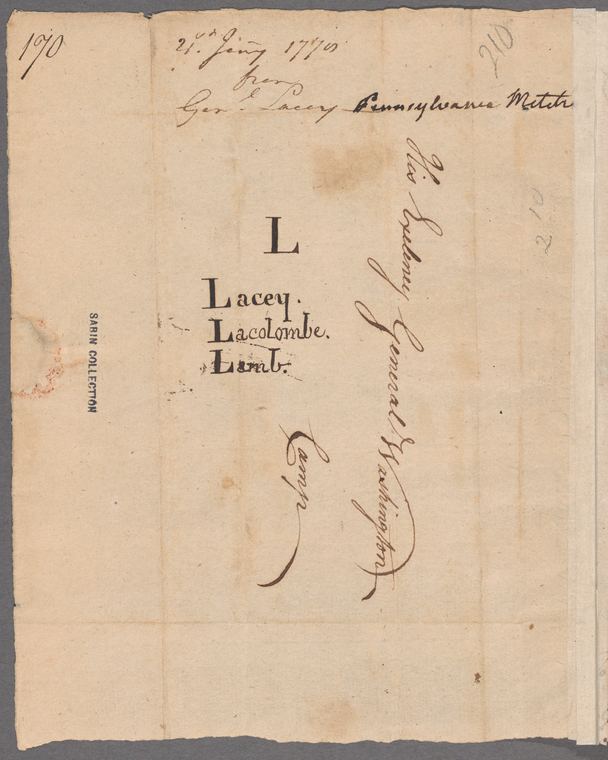 190
21st Jany 1778
from
Genl. Lacey Pennsylvania
210
His Exelency General Washington
Camp
L
Lacey.
Lacolombe.
Lamb.
SABIN COLLECTION
210